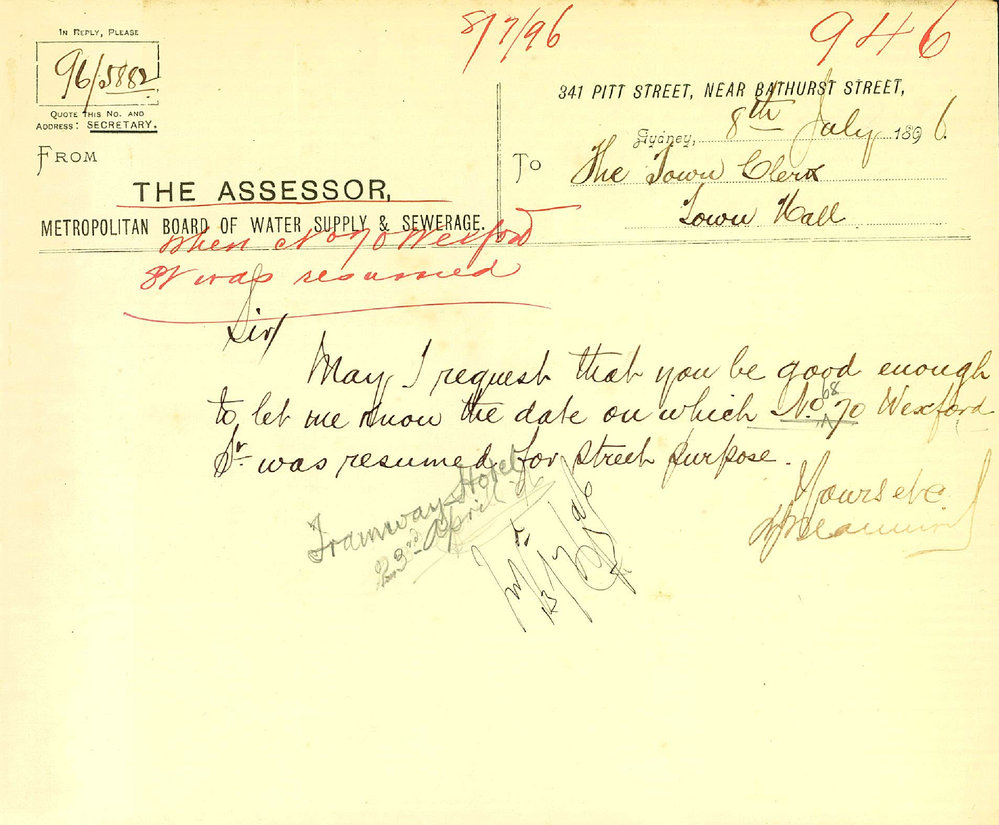 8/7/96
946
IN REPLY, PLEASE
96/5882
QUOTE THIS NO. AND
ADDRESS: SECRETARY.
FROM
THE ASSESSOR,
METROPOLITAN BOARD OF WATER SUPPLY & SEWERAGE.
341 PITT STREET, NEAR BATHURST STREET,
Sydney, 8th July 1896.
TO The Town Clerk
Town Hall
When No 70 Wexford
St was resumed
Sir/
May I request that you be good enough
to let me know the date on which No 68 70 Wexford
St. was resumed for street purpose.
Yours etc
Tramway Hotel
3rd April